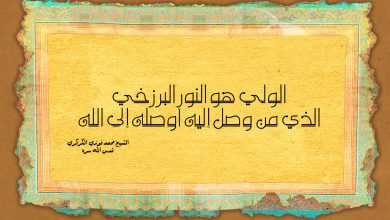 الولي هو النور البرزخي
الذي من وصل إليه أوصله إلى الله
الشيخ محمد فوزي الكركري
قدس الله سره